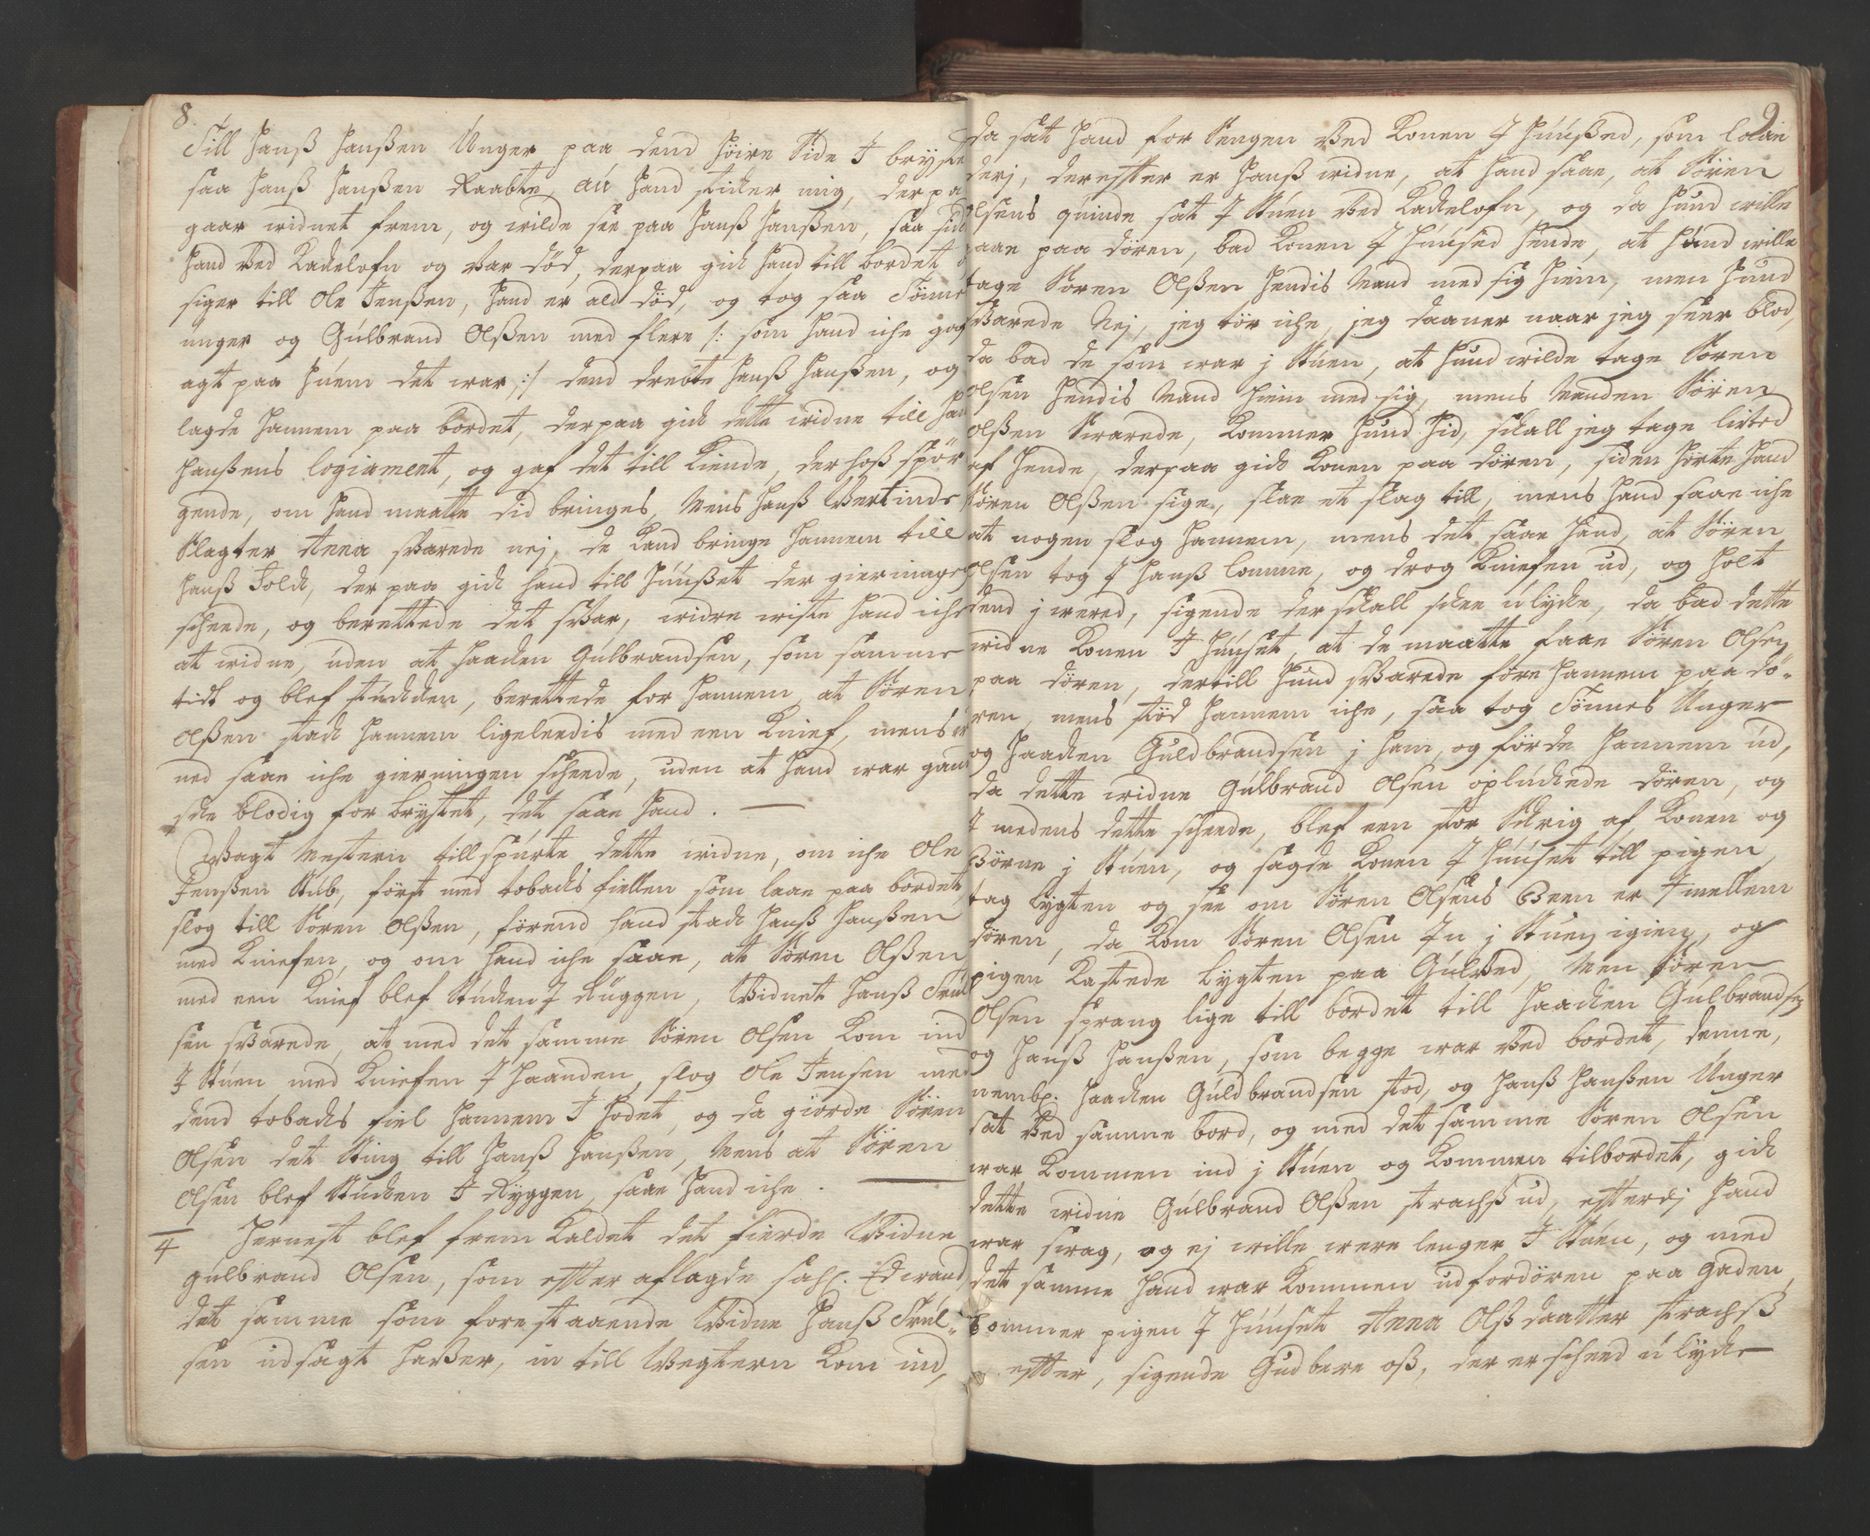 8.
Till Hanß Hanßen Unger paa dend höire Side I bryste
saa Hanß Hanßen Raabte, au hand sticker mig, derpa
gaar widnet frem, og wilde see paa Hanß Hanßen, saa sid
hand ved Kackelofn og var död, derpaa gick hand till bordet
siger till Ole Jenßen, hand er ald död, og tog saa Tönnes
unger og Gulbrand Olßen med flere /: som hand iche gaf
agt paa huem det war :/ dend drebte Hanß Hanßen, og
lagde hannem paa bordet, derpaa gick dette widne till Han
Hanßens logiament, og gaf det till Kiende, der hoß spör
gende, om hand maatte did bringes, Mens Hanß Vertinde
Slagter Anna svarede nej, de kand bringe hannem till
Hanß Folck, der paa gick hand till Huußet der gierningen
scheede, og berettede det svar, widre wiste hand iche
at widne, uden at Haacken Gulbrandsen, som samme
tidt og blef stucken, berettede for hannem at Sören
Olßen stack hannem ligeleedis med een Knief, mens
ned saae iche gierningen scheede, uden at hand war gand
ske blodig for brystet, det saae hand.
Vagt Mestern tillspurte dette widne, om iche Ole
Jenßen Stub, först med tobacks fiellen som laae paa bordet
slog till Sören Olßen, förend hand stack Hanß Hanßen
med Kniefen, og om hand iche saae, at Sören Olßen
med een Knief blef Stucken I Ryggen, Vidnet Hanß Trul
sen svarede, at med det samme Sören Olsen kom ind
I Stuen med Kniefen I Haanden, slog Ole Jensen med
dend tobacks fiel hannem I Hodet, og da giorde Sören
Olsen det Sting till Hanß Hanßen, Mens at Sören
Olsen blef Stucken I Ryggen, saae hand iche.
4 Hernest blef frem kaldet det fierde Vidne
Gulbrand Olsen, som efter aflagde Eed wand
det samme som forestaaende Vidne Hanß Trul=
sen udsagt hafver, in till Vegtern kom ind,
9
da sat hand for Sengen ved Konen I Huußed, som laae
derj, derefter er Hanß widne, at hand saae, at Sören
Olsens quinde sat I Stuen ved Kackelofn, og da hund wille
gaae paa dören, bad Konen I Huused hende, at hund wille
tage Sören Olßen hendis Mand med sig hiem, men hund
svarede Nej, jeg tör iche, jeg daaner naar jeg seer blod,
da bad de som war j Stuen, at hund wilde tage Sören
Olsen hendis Mand hiem med sig, mens Manden Sören
Olßen Svarede, kommer hund hid, skall jeg tage lived
af hende, derpaa gick Konen paa dören, siden hörte hand
Sören Olßen sige, slae et slag till, mens hand saae iche
at nogen slog hannem, mens det saae hand, at Sören
Olsen tog I Hanß lomme, og drog Kniefen ud, og holt
dend j wered, sigende der skall skee ulycke, da bad dette
widne Konen I Huuset, at de maatte faae Sören Olsen
paa dören, dertill hund svarede före hannem paa dö=
ren, mens stöd hannem iche, saa tog Tönnes Unger
og Haacken Guldbrandsen j ham, og förde hannem ud,
da dette widne Gulbrand Olsen opluckede dören, og
I medens dette scheede, blef een stor Skrig af Konen og
Börne j Stuen, og sagde Konen I Huuset till pigen,
tag lygten og see om Sören Olsens Been er Imellem
dören, da kom Sören Olsen In j Stuen igien, og
pigen kastede lygten paa Gulved, Men Sören
Olsen sprang lige till bordet till Haacken Gulbrandsen
og Hanß Hanßen, som begge war ved bordet, denne,
nembl. Haacken Guldbrandsen stod, og Hanß Hanßen Unger
sat ved samme bord, og med det samme Sören Olsen
war kommen ind j Stuen og kommen tilbordet, gick
dette widne Gulbrand Olßen strachß ud, efterdj hand
war swag, og ej wille were lenger I Stuen, og med
det samme hand war kommen udfordören paa gaden,
kommer pigen I Huuset Anna Olßdaatter strachß
efter, sigende Gud bere oß, der er scheed ulycke